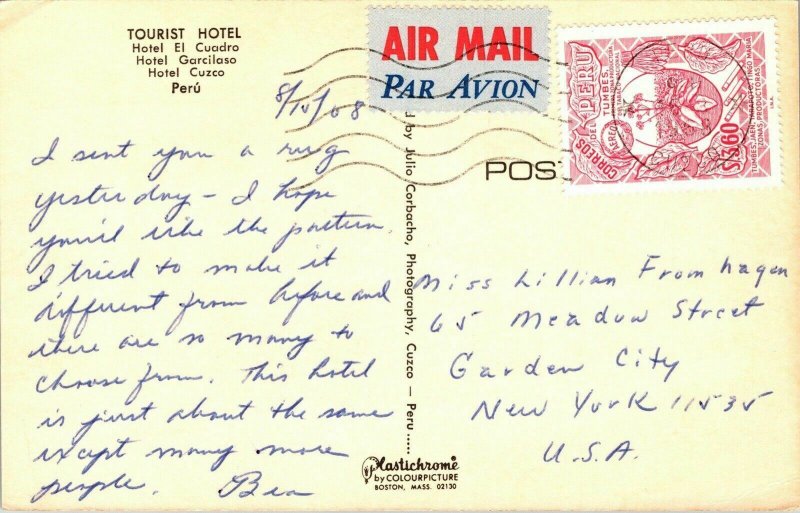 TOURIST HOTEL
Hotel El Cuadro
Hotel Garcilaso
Hotel Cuzco
Perú
AIR MAIL
PAR AVION
CORREOS DEL PERU
AEREO
TUMBES.
S/3.60
TUMBES, JAEN, TARAPOTO, TINGO MARIA
ZONAS PRODUCTORAS.
POST
8/10/68
I sent you a rug
yesterday - I hope
you'll like the pattern.
I tried to make it
different from before and
there are so many to
choose from. This hotel
is just about the same
except many more
people. Bea
d by Julio Corbacho, Photography, Cuzco - Peru.....
Miss Lillian Fromhagen
65 Meadow Street
Garden City
New York 11535
U.S.A.
Plastichrome
by COLOURPICTURE
BOSTON, MASS. 02130